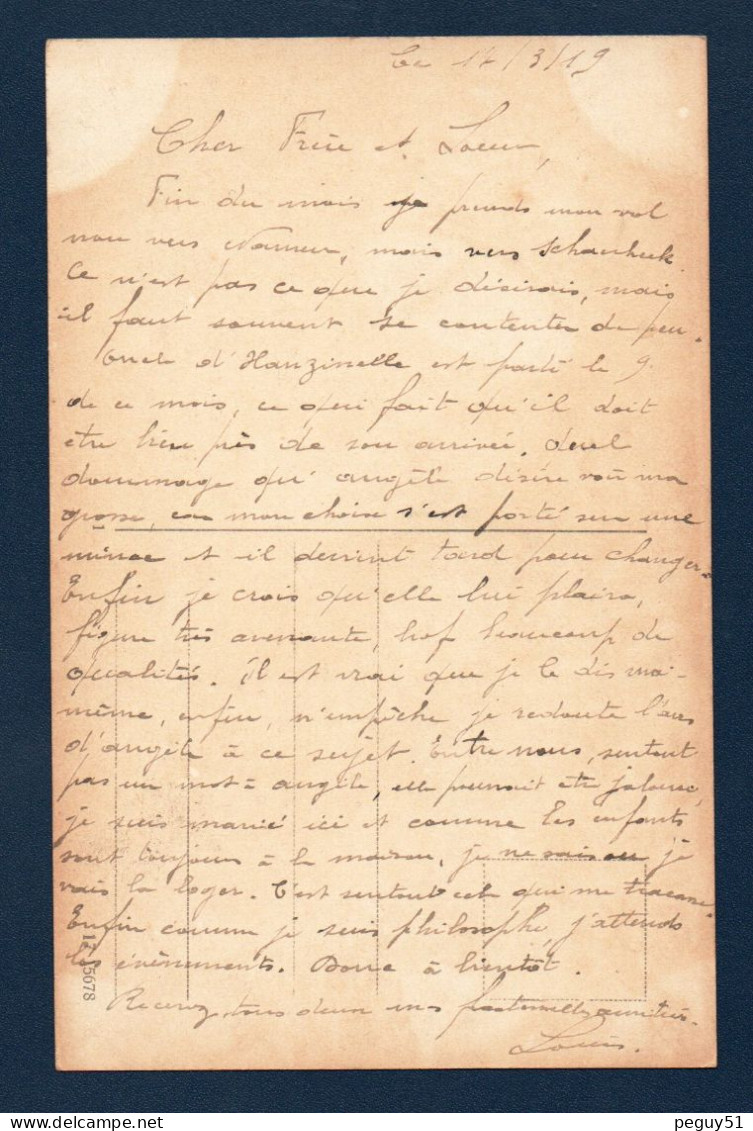 Le 14/3/19
Cher Frère et Soeur,
Fin du mois je prends mon vol
non vers Namur, mais vers Schaerbeek
Ce n'est pas ce que je désirais, mais
il faut souvent se contenter de peu.
Oncle d'Hanzinelle est parté le 9
de ce mois, ce qui fait qu'il doit
être bien près de son arrivée. Quel
dommage qu'angèle désire voir ma
gosse, car mon choix s'est porté sur une
mince et il devient tard pour changer.
Enfin je crois qu'elle lui plaira,
figure très avenante, bref beaucoup de
qualités. Il est vrai que je le dis moi-
même, enfin, n'empêche je redoute l'avis
d'angèle à ce sujet. Entre nous, surtout
pas un mot à angèle, elle pourrait être jalouse,
je suis marié ici et comme les enfants
sont toujours à la maison, je ne sais où je
vais la loger. C'est surtout cela qui me tracasse.
Enfin comme je suis philosophe, j'attends
les événements. Donc à bientôt.
Recevez tous deux mes fraternelles amitiés.
Louis.
5678
peguy51